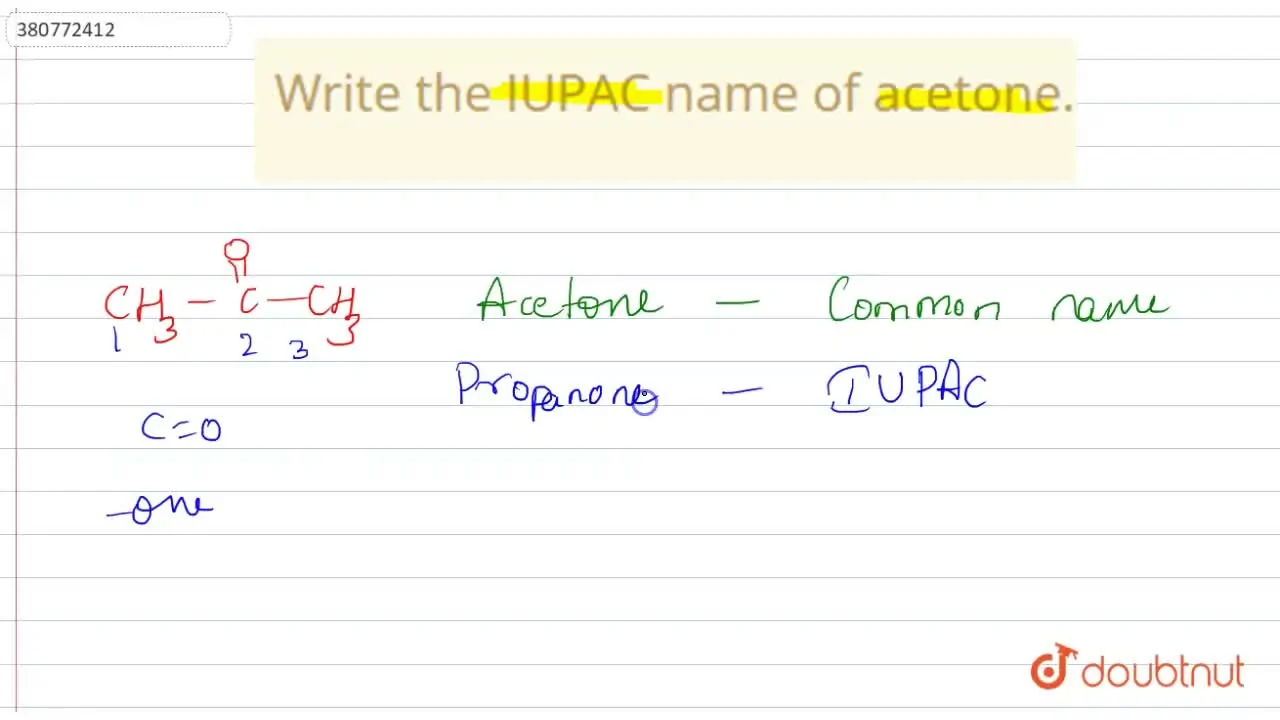 380772412
Write the IUPAC name of acetone.
O
CH3 - C - CH3
1 2 3
Acetone - Common name
Propanone - IUPAC
C=O
-one
doubtnut